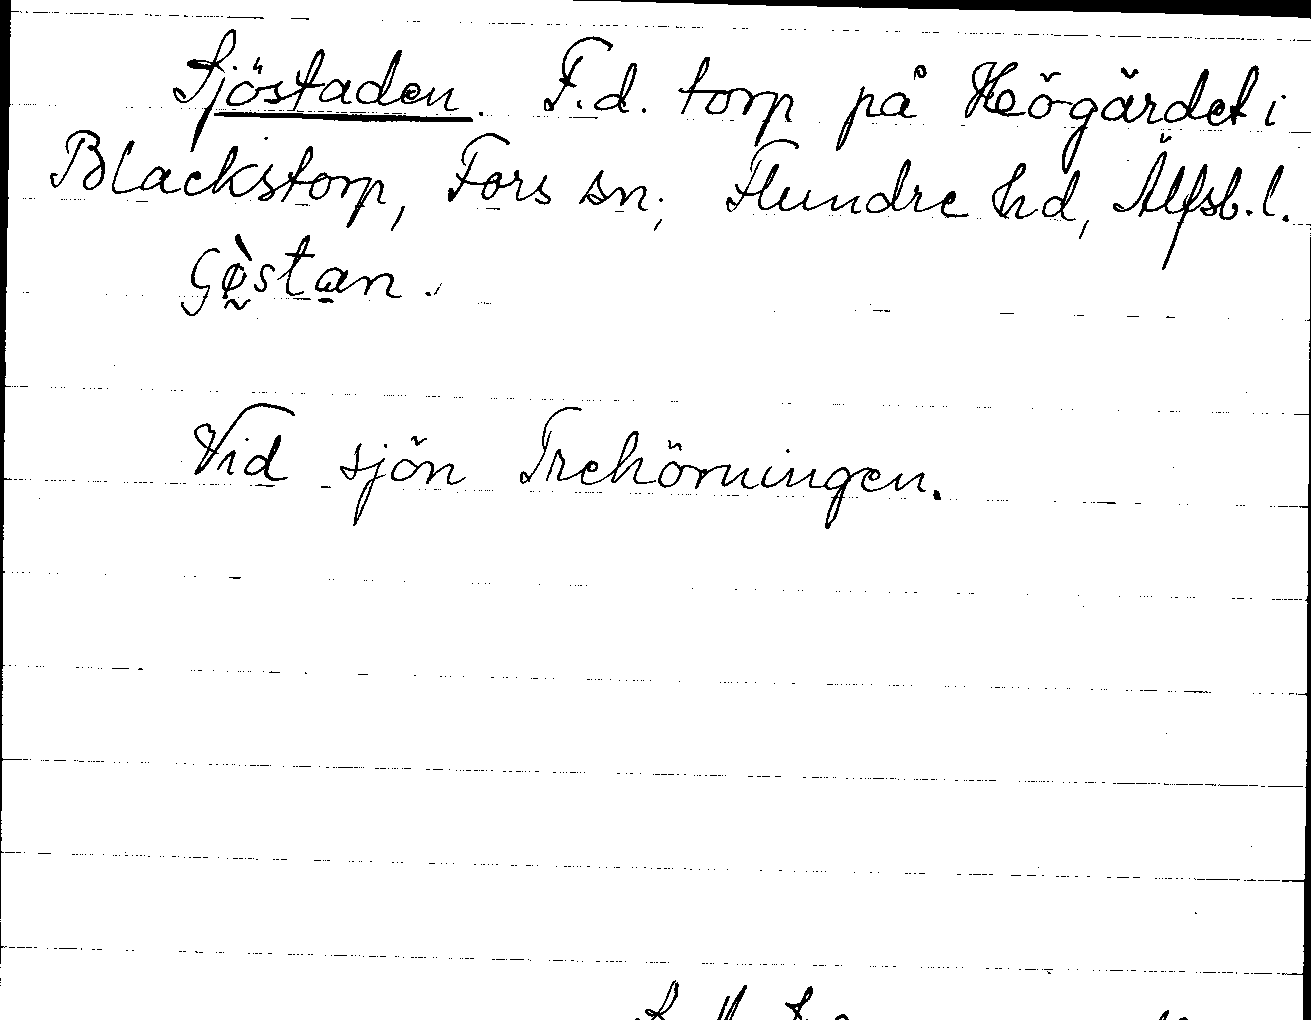 Sjöstaden. F.d. torp på Högärdet i
Blackstorp, Fors sn; Flundre hd, Älfsb. l.
Vid sjön Trehörningen.